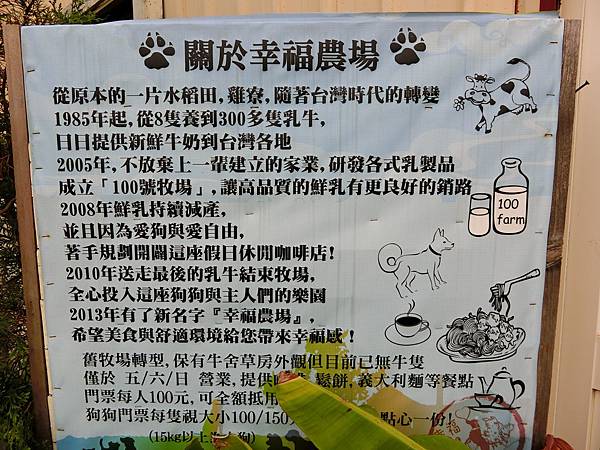 關於幸福農場
從原本的一片水稻田,雞寮,隨著台灣時代的轉變
1985年起,從8隻養到300多隻乳牛,
日日提供新鮮牛奶到台灣各地
2005年,不放棄上一輩建立的家業,研發各式乳製品
成立「100號牧場」,讓高品質的鮮乳有更良好的銷路
100
farm
2008年鮮乳持續減產,
並且因為愛狗與愛自由,
著手規劃開闢這座假日休閒咖啡店!
2010年送走最後的乳牛結束牧場,
全心投入這座狗狗與主人們的樂園
2013年有了新名字『幸福農場』,
希望美食與舒適環境給您帶來幸福感!
舊牧場轉型,保有牛舍草房外觀但目前已無牛隻
僅於 五/六/日 營業,提供 鬆餅,義大利麵等餐點
門票每人100元,可全額抵用
狗狗門票每隻視大小100/150 點心一份!
(15kg以上